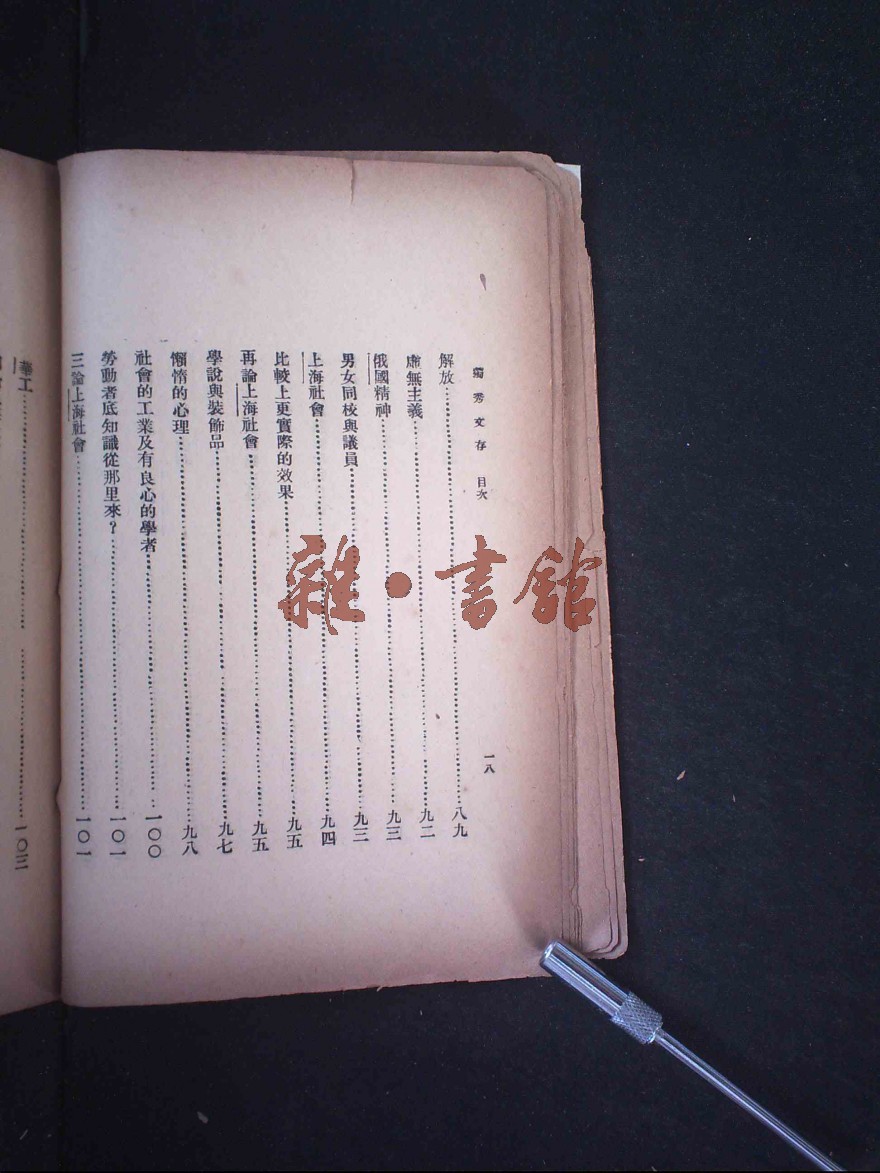 獨秀文存 目次 一八
解放……八九
虛無主義……九二
俄國精神……九三
男女同校與議員……九三
上海社會……九四
比較上更實際的效果……九五
再論上海社會……九五
學說與裝飾品……九七
懶惰的心理……九八
社會的工業及有良心的學者……一〇〇
勞動者底知識從那里來？……一〇一
三論上海社會……一〇一
華工……一〇三
雜·書館